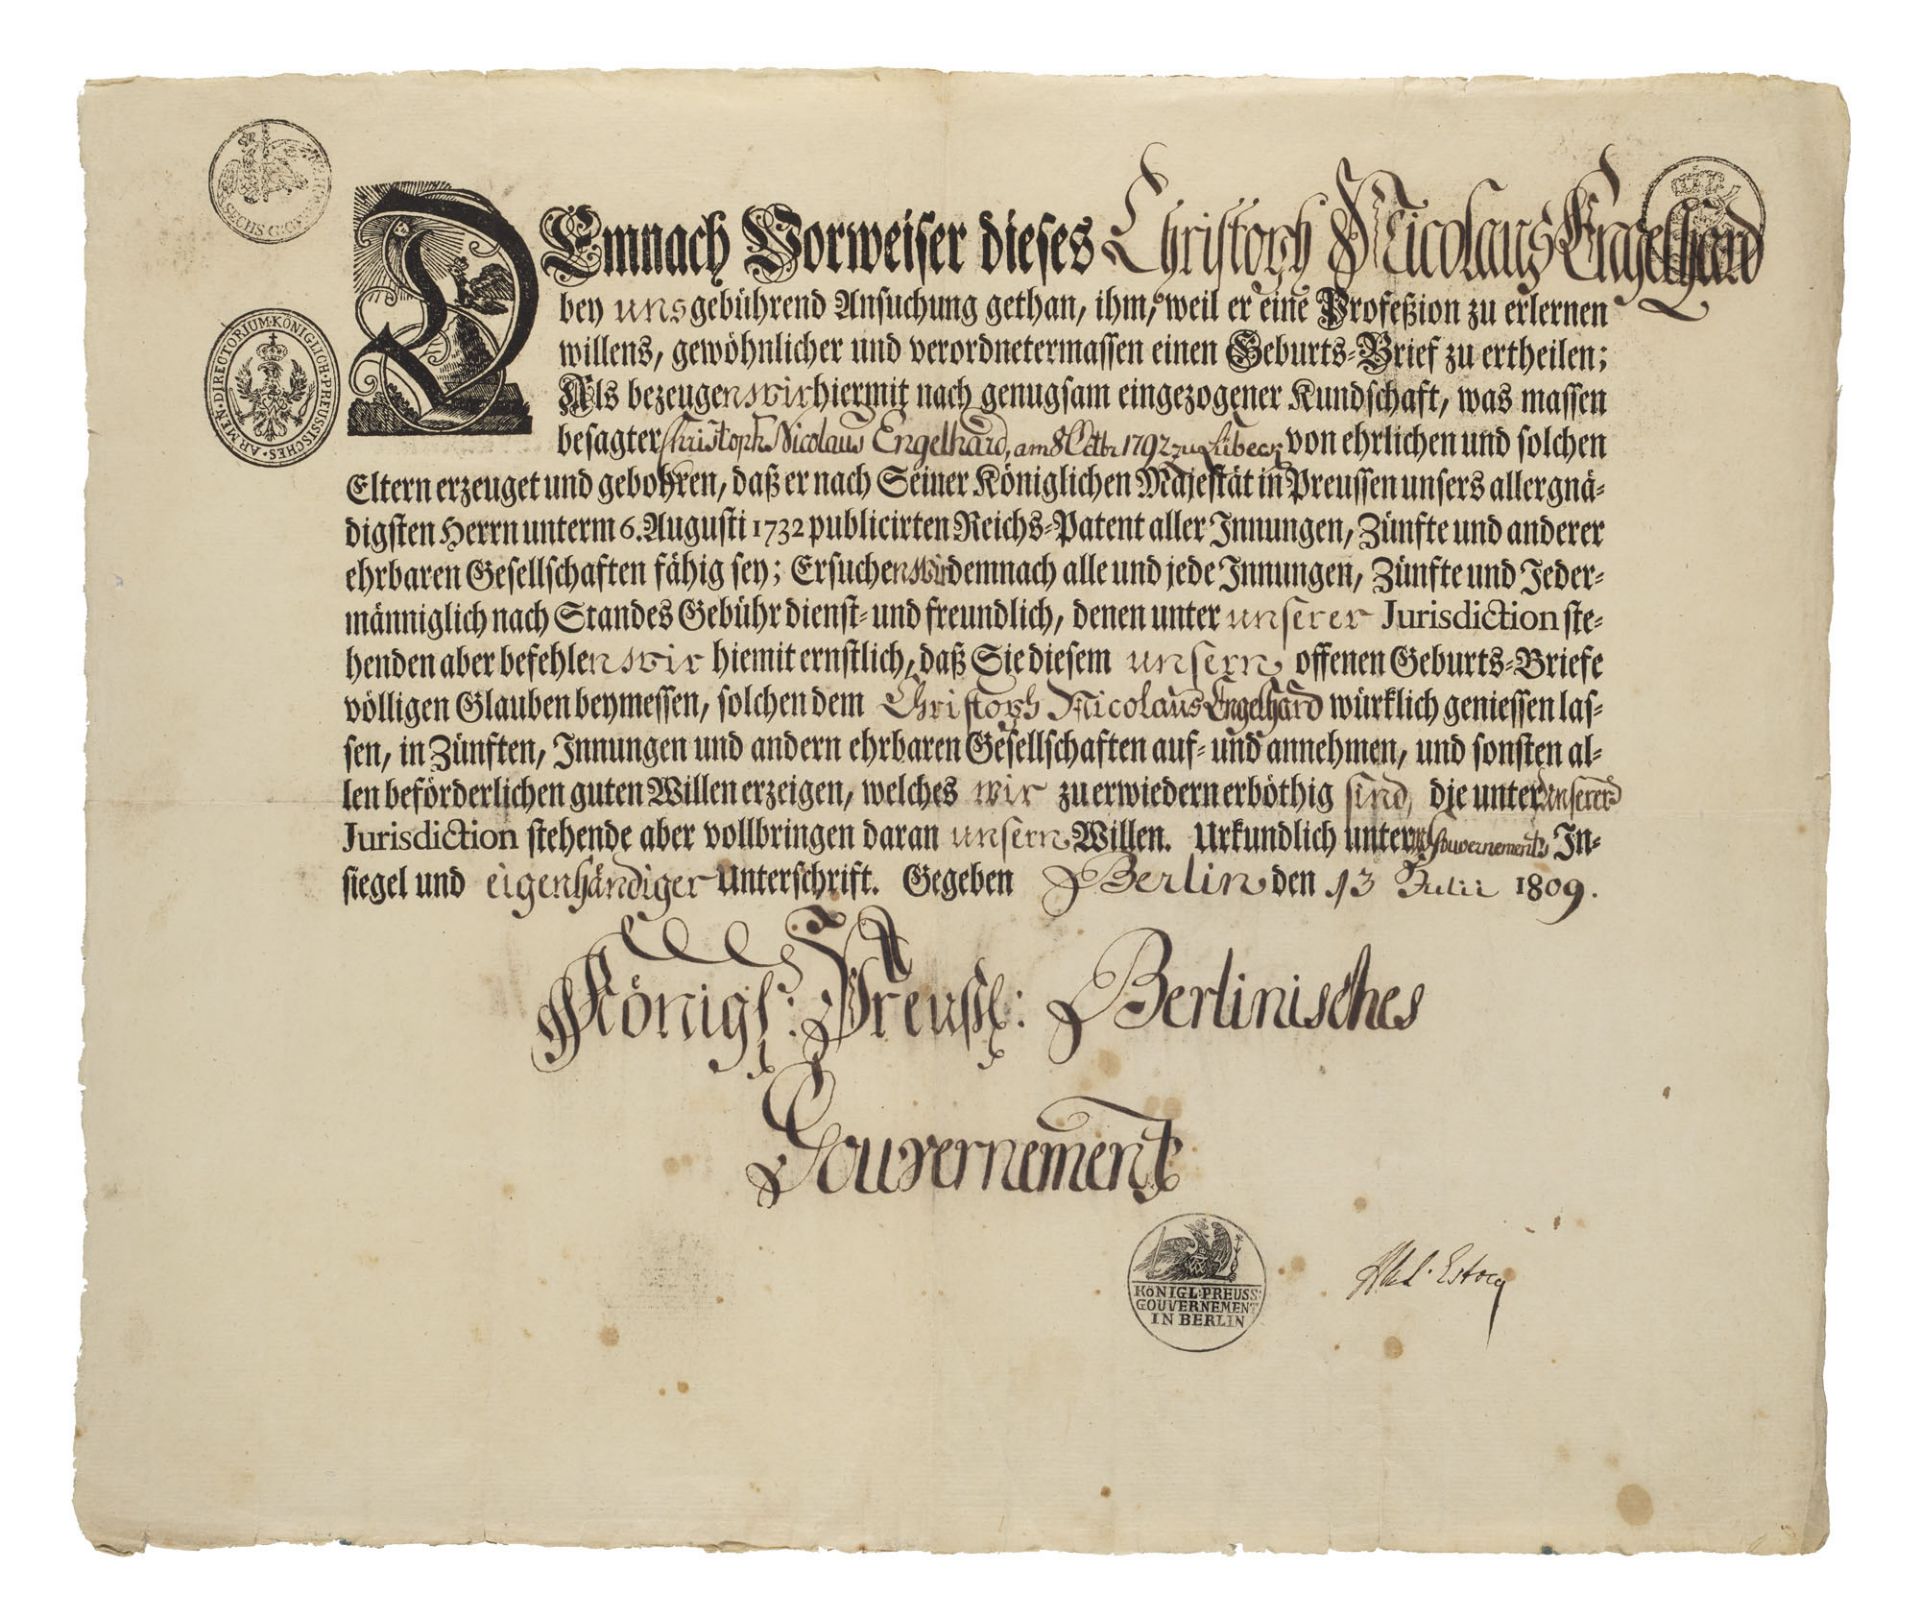 DEmnach Vorweiser dieses Christoph Nicolaus Engelhard
bey uns gebührend Ansuchung gethan, ihm, weil er eine Profeßion zu erlernen
willens, gewöhnlicher und verordnetermassen einen Geburts-Brief zu ertheilen;
Als bezeugen wir hiermit nach genugsam eingezogener Kundschaft, was massen
besagter Christoph Nicolaus Engelhard, am 8 Octbr 1792 zu Lübeck von ehrlichen und solchen
Eltern erzeuget und gebohren, daß er nach Seiner Königlichen Majestät in Preussen unsers allergnä-
digsten Herrn unterm 6. Augusti 1732 publicirten Reichs-Patent aller Innungen, Zünfte und anderer
ehrbaren Gesellschaften fähig sey; Ersuchen wir demnach alle und jede Innungen, Zünfte und Jeder-
männiglich nach Standes Gebühr dienst- und freundlich, denen unter unserer Jurisdiction ste-
henden aber befehlen wir hiemit ernstlich, daß Sie diesem unsern offenen Geburts-Briefe
völligen Glauben beymessen, solchen dem Christoph Nicolaus Engelhard würklich geniessen las-
sen, in Zünften, Innungen und andern ehrbaren Gesellschaften auf- und annehmen, und sonsten al-
len beförderlichen guten Willen erzeigen, welches wir zu erwiedern erböthig sind, die unter unserer
Jurisdiction stehende aber vollbringen daran unsern Willen. Urkundlich unterm Gouvernements In-
siegel und eigenhändiger Unterschrift. Gegeben Berlin den 13 Julii 1809.
Königl: Preuß: Berlinisches
Gouvernement
SECHS G:GR
ARMEN·DIRECTORIUM·KÖNIGLICH·PREUSSISCHES·
KÖNIGL:PREUSS:
GOUVERNEMENT
IN BERLIN